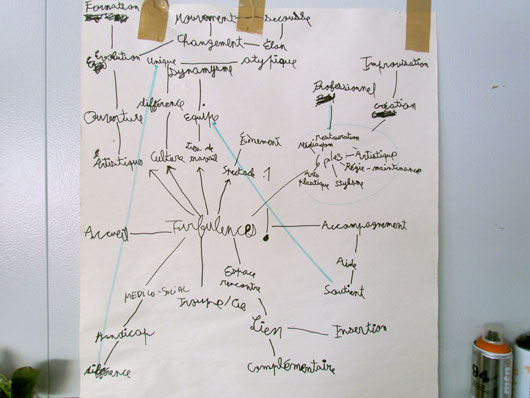 Formation
Mouvement
secousse
Changement
Elan
Evolution
unique
atypique
Dynamysme
Improvisation
Professionnel
création
différence
Ouverture
Equilibre
restauration
Médiation
Evènement
Artistique
Culture
Lieu de
travail
Spectacle
1
pôles
Artistique
Régie-maintenance
Arts
plastique
Stylisme
Accueil
Turbulences
!
Accompagnement
Aide
Soutient
Espace
rencontre
MEDICO-SOCIAL
Troupe/Cie
Handicap
Lien
Insertion
différence
Complémentaire
94
mtn